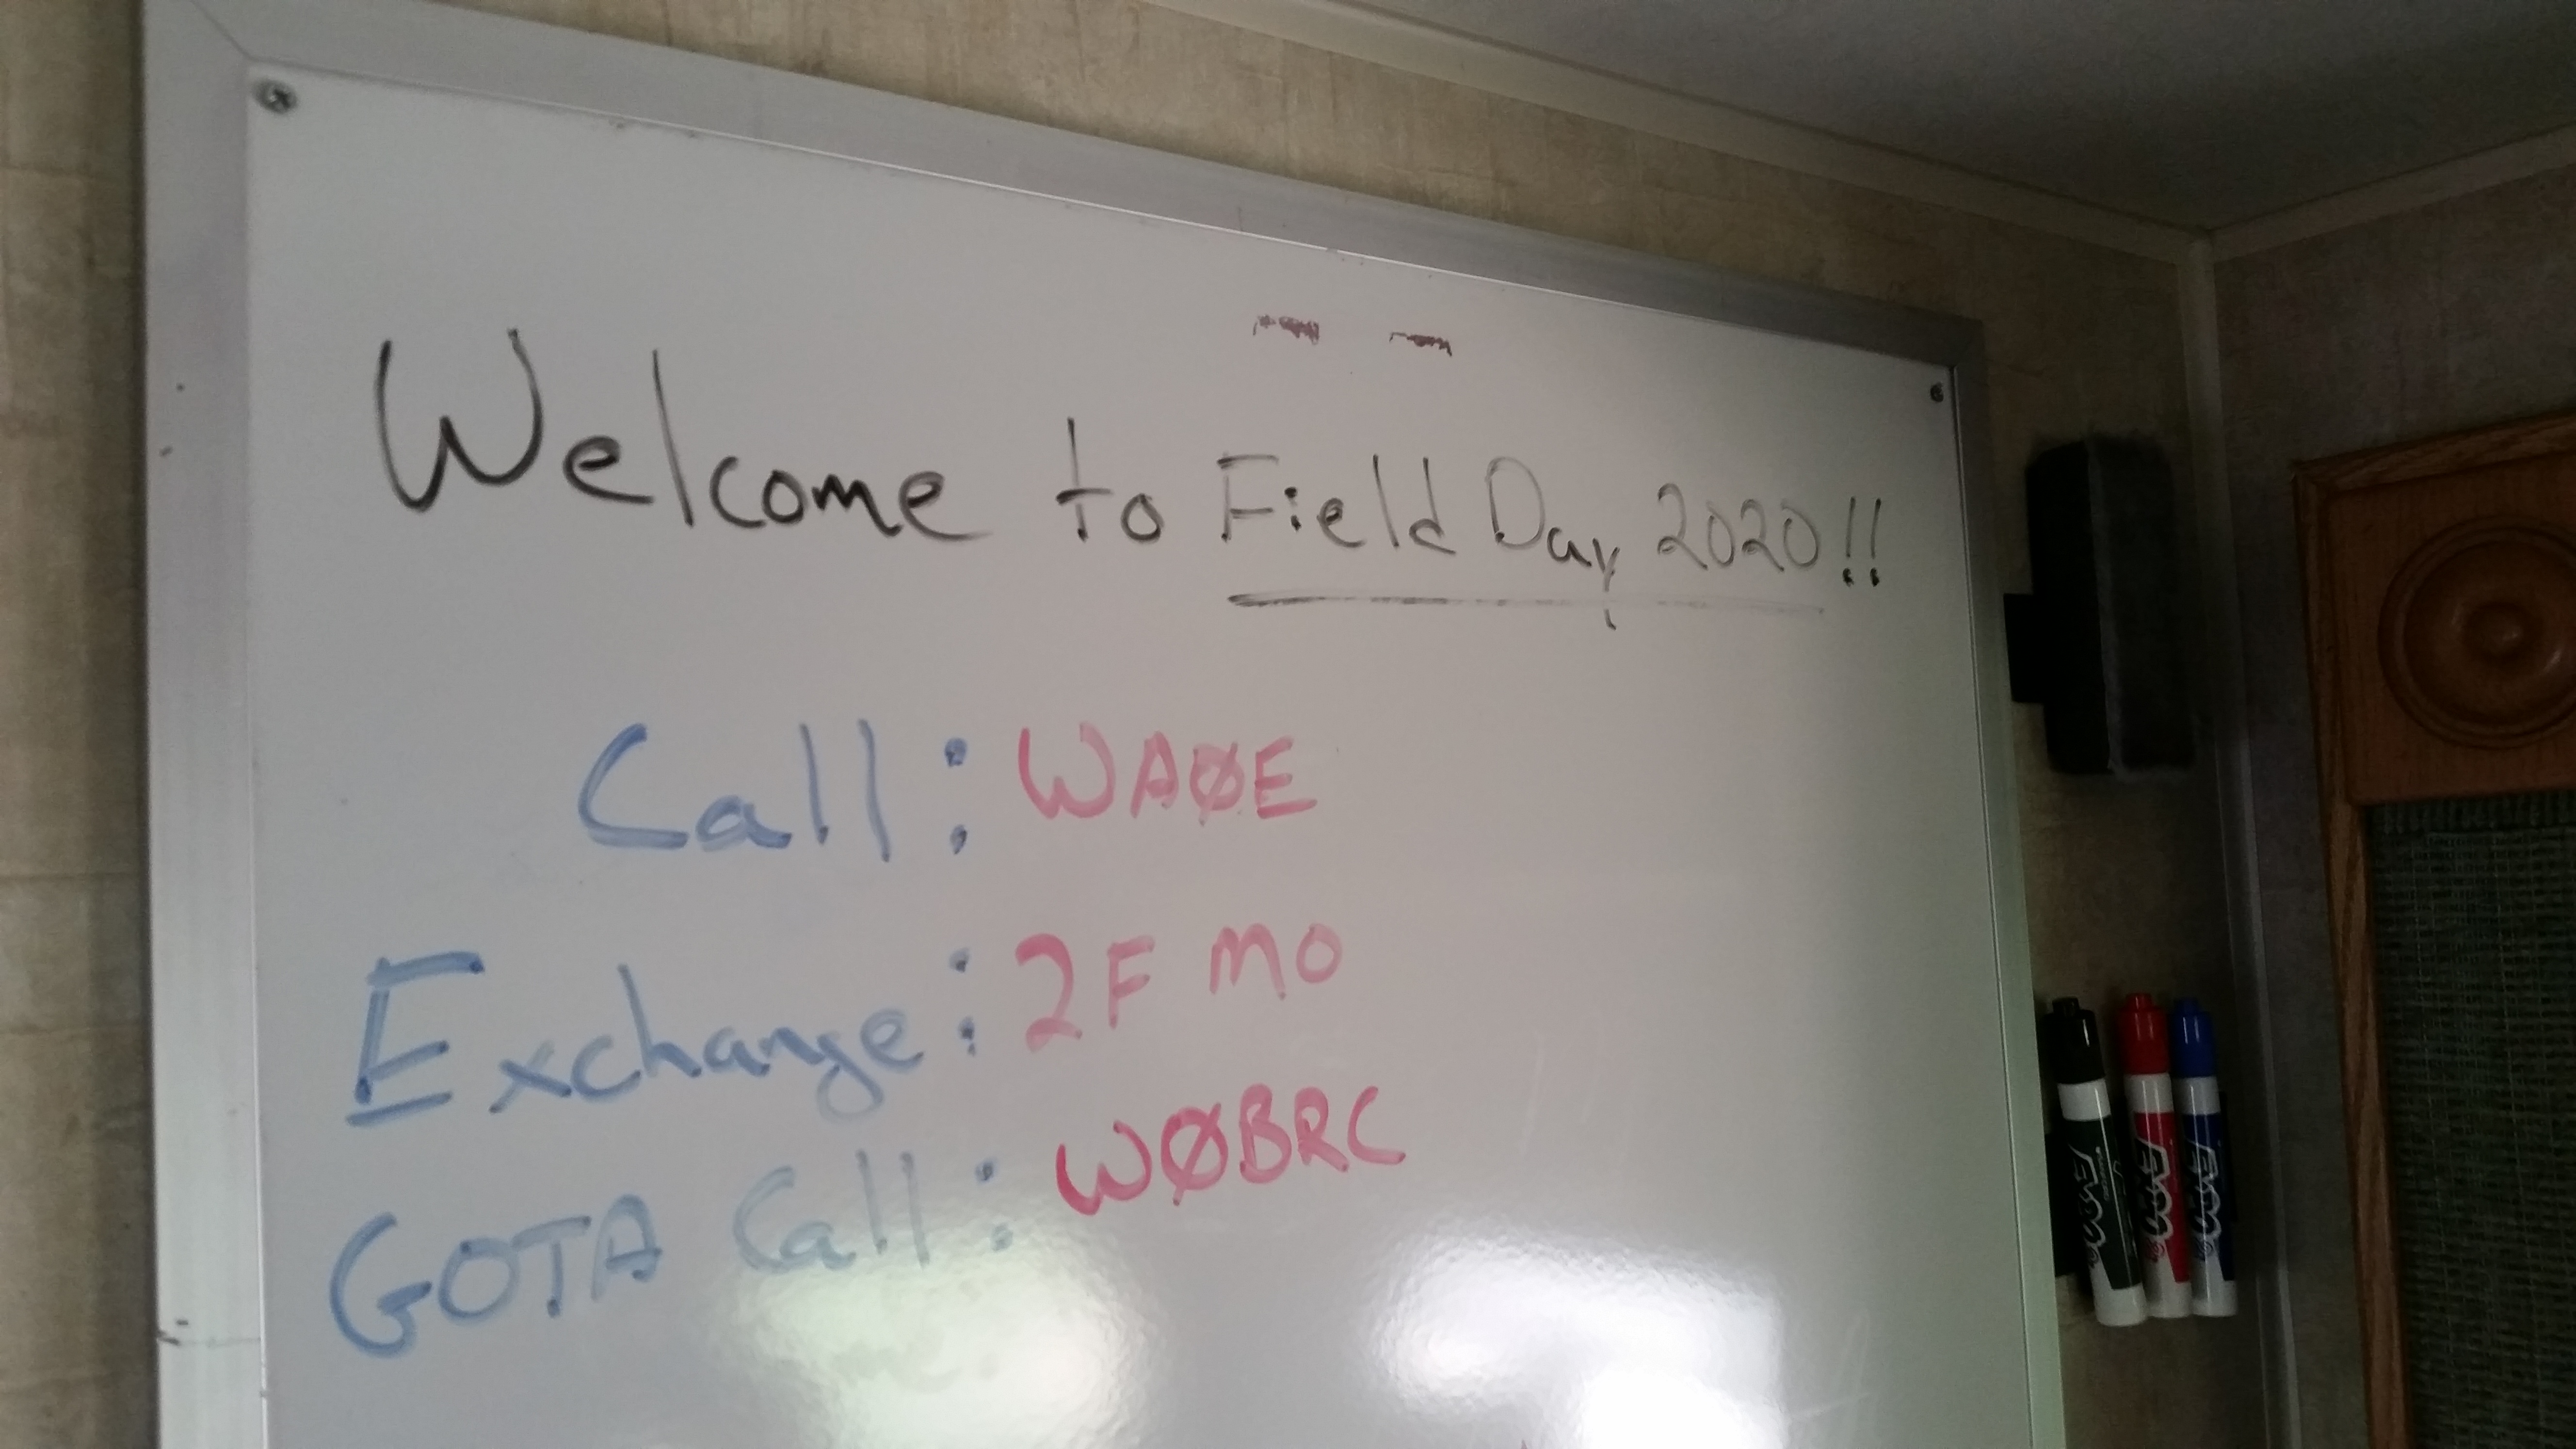 Welcome to Field Day 2020!!
Call: WAØE
Exchange: 2F MO
GOTA Call: WØBRC
EXPO
EXPO
EXPO